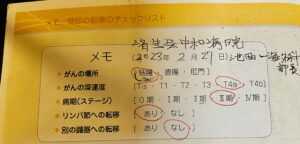 メモ・受診の前後のチェックリスト
済生会中和病院
メモ (2023年2月27日) 池田 外科 部長
●がんの場所 [結腸・直腸・肛門]
●がんの深達度 [Tis・T1・T2・T3・T4a・T4b]
●病期(ステージ) [0期・Ⅰ期・Ⅱ期・Ⅲ期・Ⅳ期]
●リンパ節への転移 [あり・なし]
●別の臓器への転移 [あり・なし]